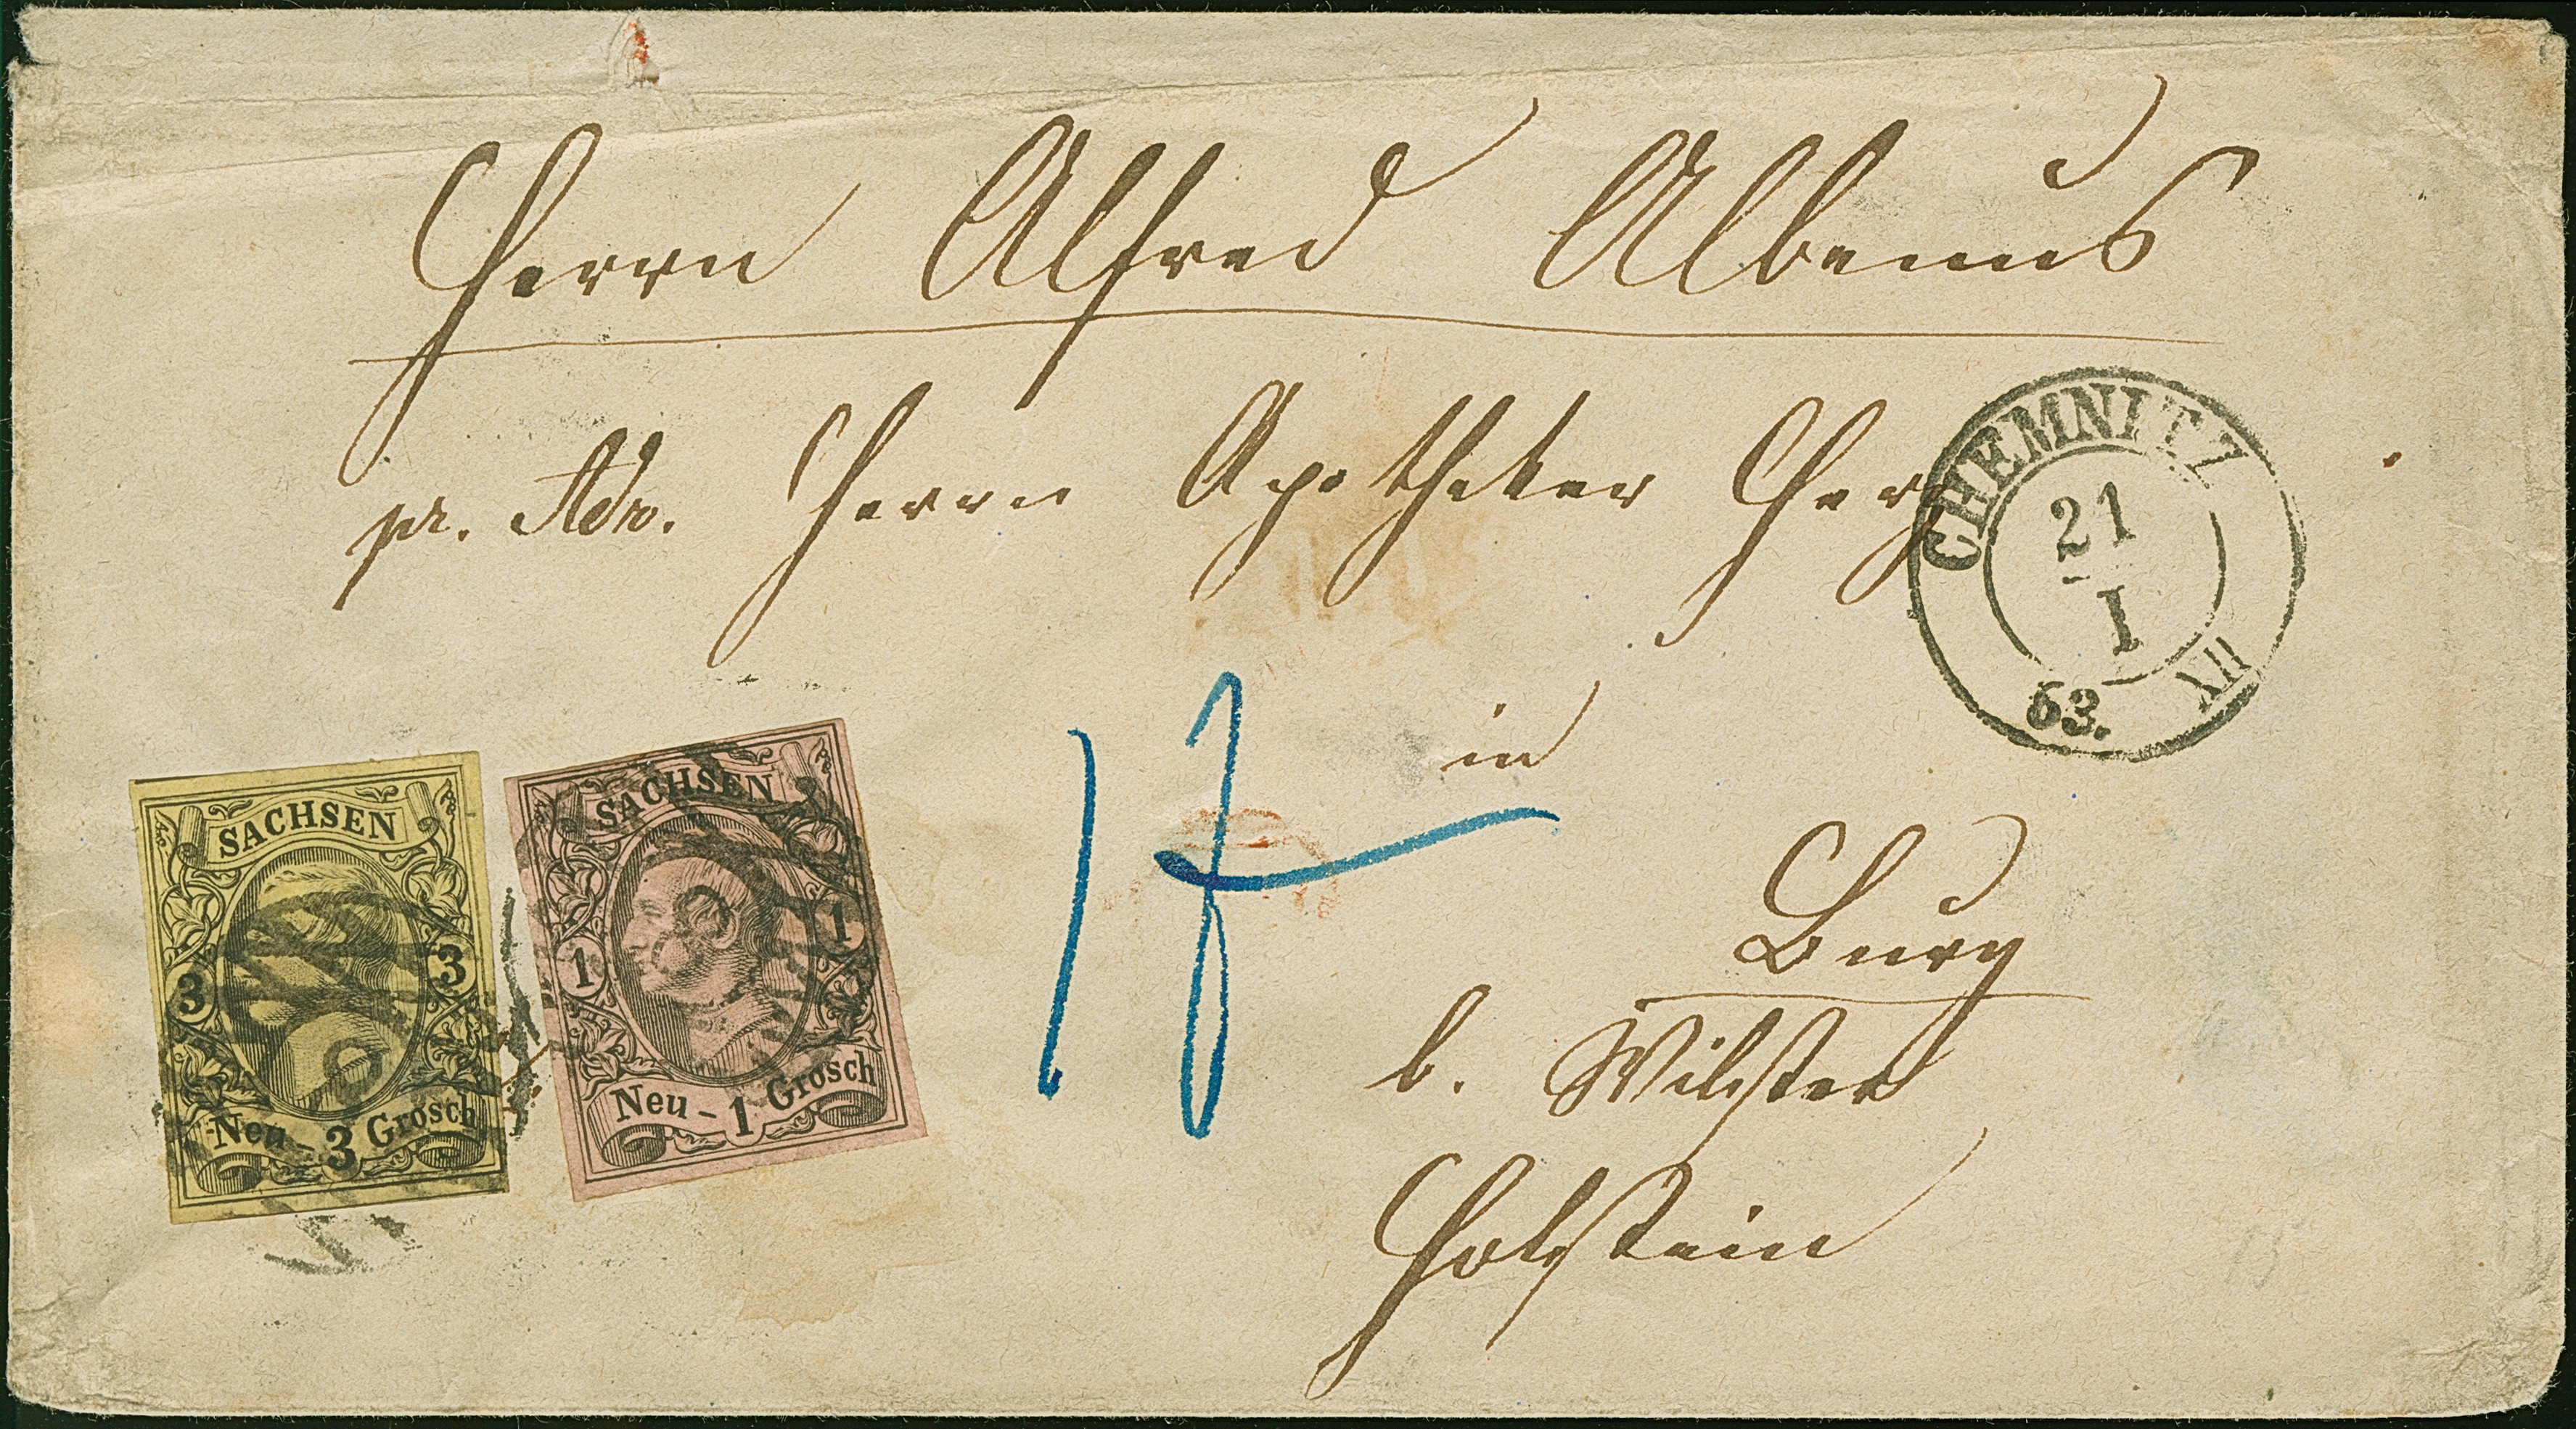 Herrn Alfred Albenus
pr. Adr. Herrn Apotheker Herz
in
Burg
b. Wilster
Holstein
CHEMNITZ
21
I
63. XII
SACHSEN
3 3
Neu - 3 Grosch
SACHSEN
1 1
Neu - 1 Grosch